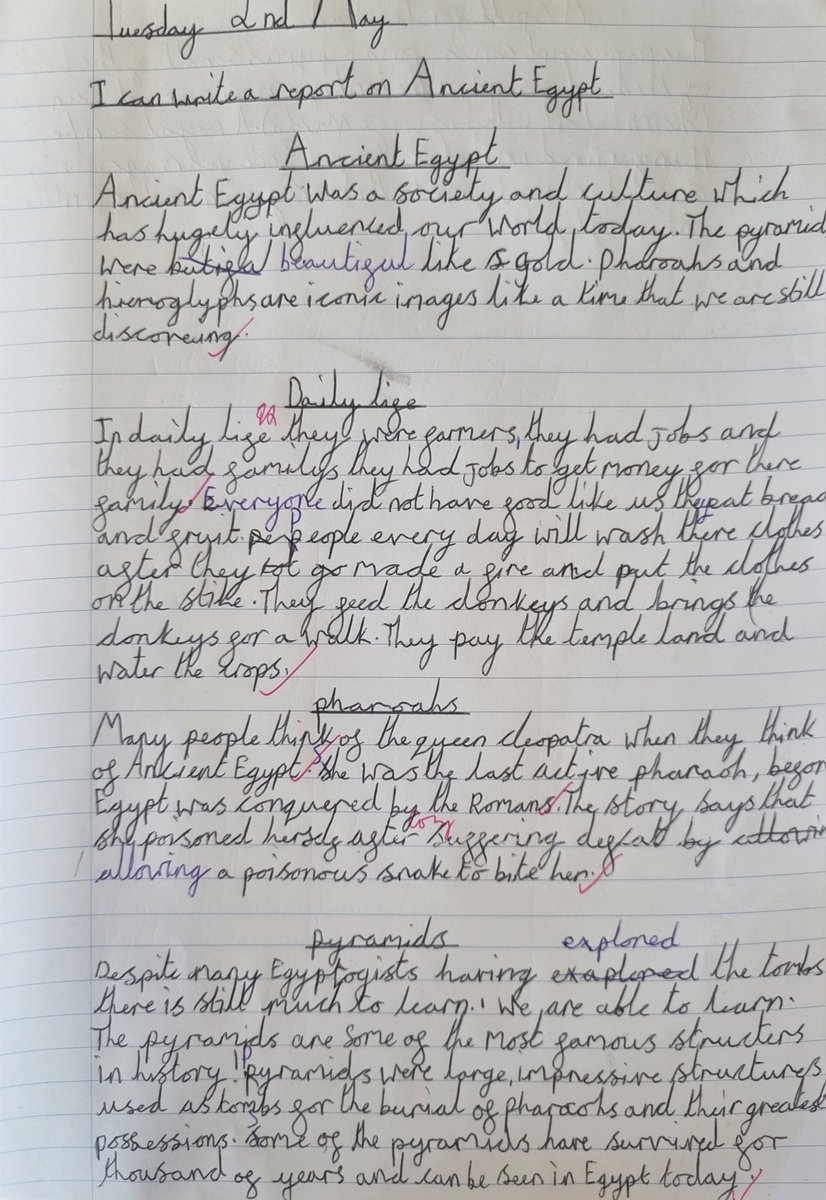 Tuesday 2nd May
I can write a report on Ancient Egypt
Ancient Egypt
Ancient Egypt was a society and culture which
has hugely influenced our world today. The pyramid
were beautiful like gold. Pharoahs and
hieroglyphs are iconic images like a time that we are still
discoreing.
Daily life
In daily life they were farmers, they had jobs and
they had familys they had jobs to get money for there
family. Everyone did not have food like us they eat bread
and fruit. people every day will wash there clothes
after they go made a fire and put the clothes
on the stike. They feed the donkeys and brings the
donkeys for a walk. They pay the temple land and
water the crops.
pharoahs
Many people think of the queen cleopatra when they think
of Ancient Egypt. She was the last active pharaoh, before
Egypt was conquered by the Romans. The story says that
she poisoned herself after suffering by
allowing a poisonous snake to bite her.
pyramids
explored
Despite many Egyptogists having the tombs
there is still much to learn. We are able to learn.
The pyramids are some of the most famous structers
in history! Pyramids were large, impressive structures
used as tombs for the burial of pharaohs and their greatest
possessions. Some of the pyramids have survived for
thousand of years and can be seen in Egypt today.